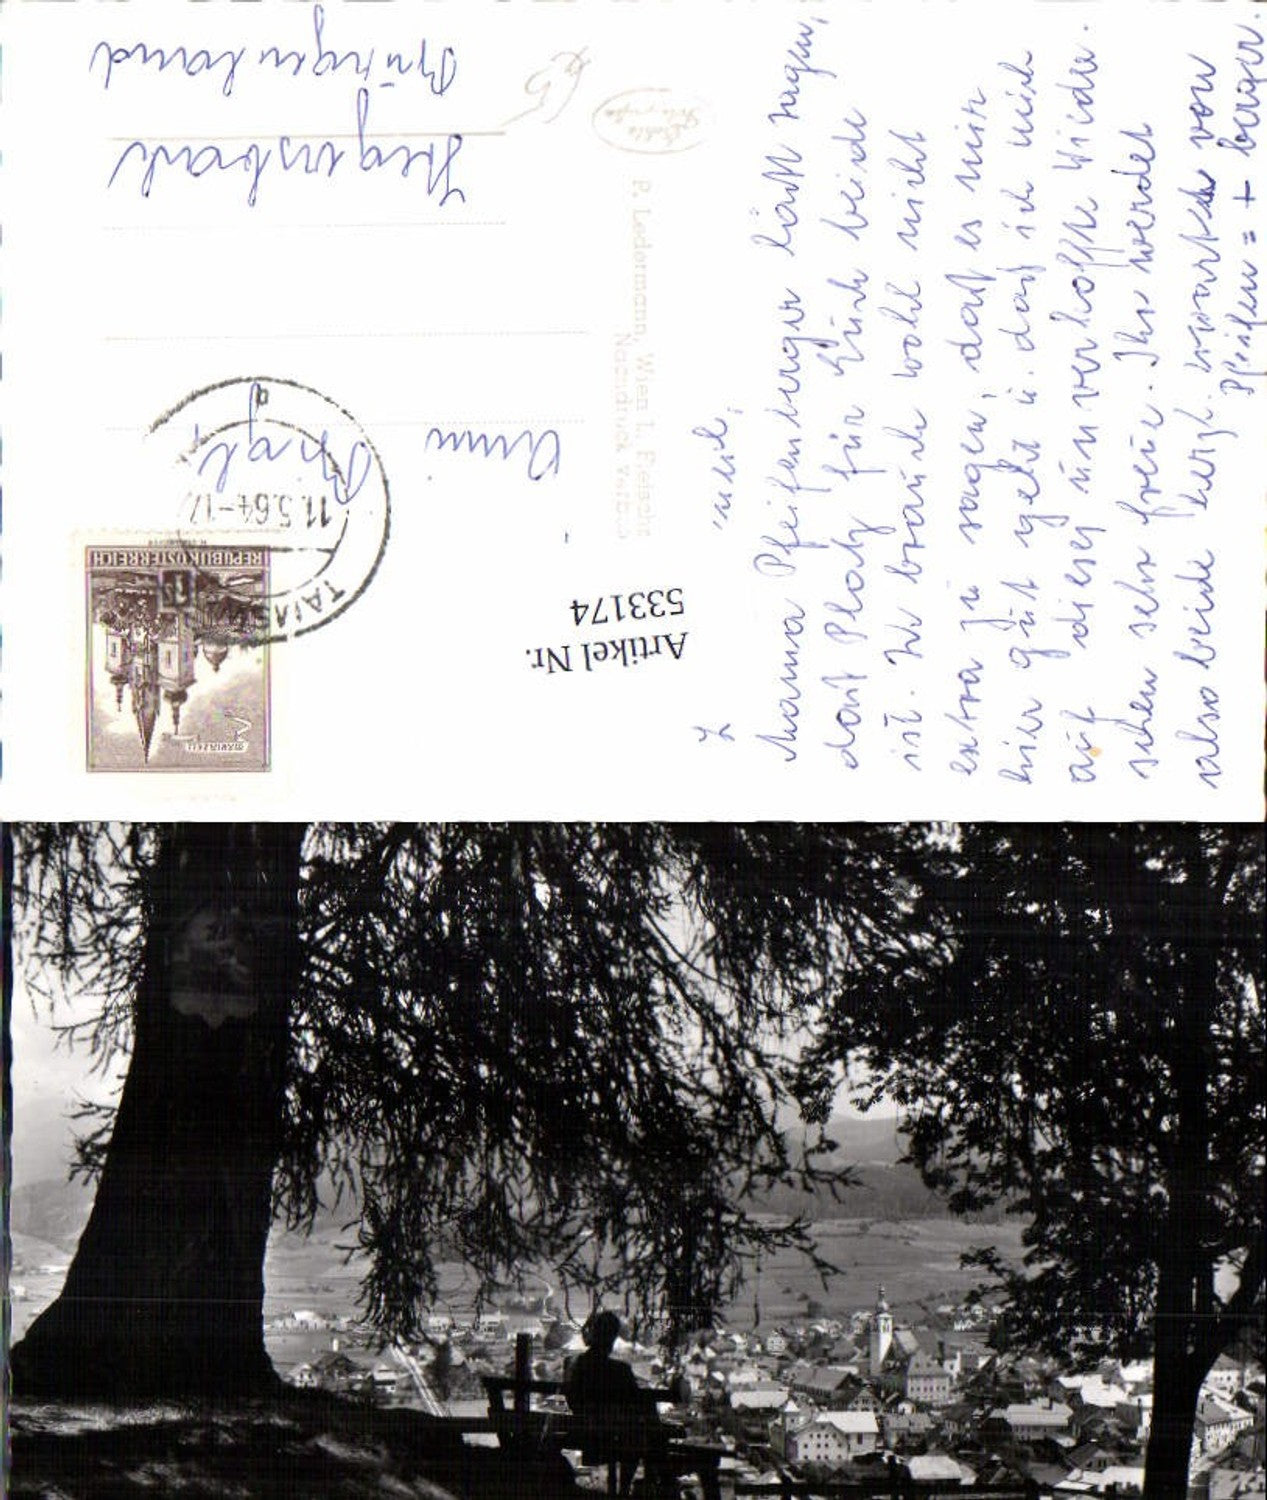 Mama Pfeifenberger läßt sagen,
daß Platz für Euch beide
ist. Ihr braucht wohl nicht
extra zu sagen, daß es mir
hier gut geht u. daß ich mich
auf dieses unverhoffte Wieder-
sehen sehr freue. Ihr werdet
also beide herzl. erwartet von
Pfeifen = + berger.
Artikel Nr.
533174
P. Ledermann, Wien I., Fleischm
Nachdruck verbo
REPUBLIK ÖSTERREICH
MARIAZELL
TAMSW
11.5.64-17
g
Anni
Stegersbach
Burgenland